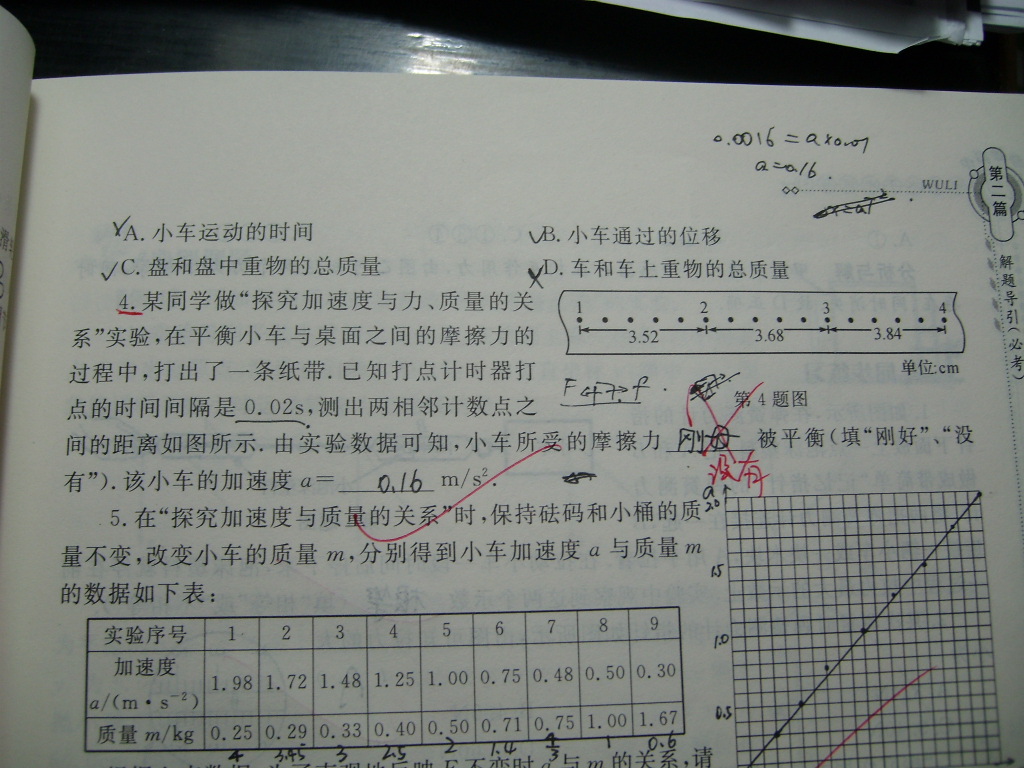 0.0016=a×0.01
a=0.16.
WULI
第二篇
解题导引(必考)
A. 小车运动的时间
B. 小车通过的位移
C. 盘和盘中重物的总质量
D. 车和车上重物的总质量
4. 某同学做“探究加速度与力、质量的关
系”实验,在平衡小车与桌面之间的摩擦力的
过程中,打出了一条纸带. 已知打点计时器打
点的时间间隔是 0.02s,测出两相邻计数点之
间的距离如图所示. 由实验数据可知,小车所受的摩擦力 刚好 被平衡(填“刚好”、“没
有”). 该小车的加速度 a= 0.16 m/s².
没有
1 2 3 4
3.52 3.68 3.84
单位:cm
第 4 题图
F f
5. 在“探究加速度与质量的关系”时,保持砝码和小桶的质
量不变,改变小车的质量 m,分别得到小车加速度 a 与质量 m
的数据如下表:
实验序号 1 2 3 4 5 6 7 8 9
加速度
a/(m·s⁻²) 1.98 1.72 1.48 1.25 1.00 0.75 0.48 0.50 0.30
质量 m/kg 0.25 0.29 0.33 0.40 0.50 0.71 0.75 1.00 1.67
4 3.45 3 2.5 2 1.4 4/3 1 0.6
a
2.0
1.5
1.0
0.5